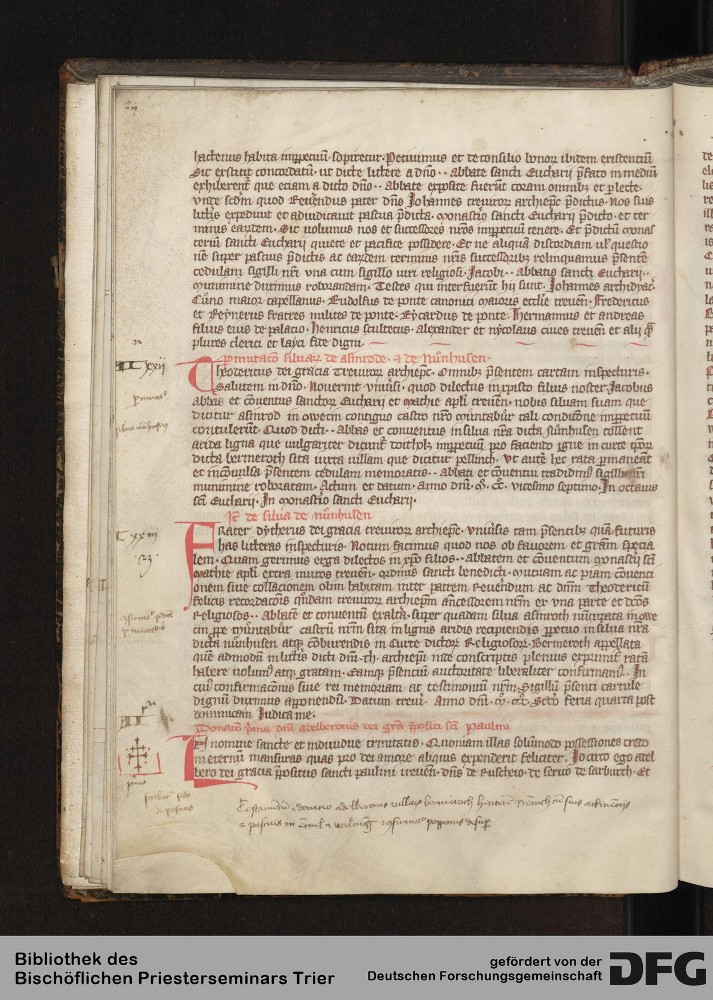 hactenus habita imppetuū sopiretur. Petiuimus et de consilio bonoꝝ ibidem existenciū
Sic extitit concordatū. ut dicte littere a dn̄o .. abbate sancti Eucharii p̄fato in mediū
exhiberent̄ que eciam a dicto dn̄o .. abbate exposite fuerūt coram omnibꝫ et plecte.
vnde scd̄m quod Reuēndus pater dn̄s Johannes treuiroꝝ archiep̄c p̄dictus. Nos suis
litt̄is expediuit et adiudicauit pascua p̄dicta. monastio sancti Eucharii p̄dicto. et ter
minis eardem. Sic volumus nos et successores nr̄os imppetuū tenere. Et p̄dictū monas
teriū sancti Eucharii quiete et pacifice possidere. Et ne aliqua discordiam ul' questio
ne super pascuis p̄dictis ac eardem terminis nr̄is successoribꝫ relinquamus p̄sente
cedulam sigilli nr̄i vna cum sigillo viri religiosi. Jacobi .. abbatis sancti Eucharii ..
munimine duximus roborandam. Testes qui interfuerūt hii sunt. Johannes archidyac̄.
Cūno maior capellanus. Rudolfus de ponte canonici maioris ecclie treuen̄. Fredericus
et Reynerus fratres milites de ponte. Rycardus de ponte. Hermannus et andreas
filius eius de palacio. Henricus scultetus. alexander et nycolaus ciues treuen̄ et alii qͣ
plures clerici et layci fide digni.
Cxxii
Pmutacō siluaꝝ de asinrode. et de Nūnhusen.
Theodericus dei gracia Treuiroꝝ archiep̄c. Omnibꝫ p̄sentem cartam inspecturis.
Salutem in dn̄o. Nouerint vniusi. quod dilectus in xpisto filius noster Jacobus
abbas et cōuentus sanctoꝝ Eucharii et mathie apl̄i treuen̄. nobis siluam suam que
dicitur asinrod in owecim contiguo castro nr̄o mūntabūr tali condicōne imppetuū
contulerunt. Quod dicti .. abbas et conuentus in silua nr̄a dicta nūnhusen tollent
arida ligna que vulgariter dicunt̄ doitholz imppetuū pro faciendo igne in curte ipoꝝ
dicta bermeroth sita iuxta villam que dicitur pellinch. Vt autē hec rata pmaneāt
et incōuulsa p̄sentem cedulam memoratis .. abbati et cōuentui tradidimꝰ sigilli nr̄i
munimine roboratam. Actum et datum. anno dn̄i. m̊. cc̊. vicesimo septimo. In octauis
sc̄i Eucharii. In monastio sancti Eucharii.
Cxxiii
Itē de silua de nūnhusen
Frater dytherus dei gracia treuiroꝝ archiep̄c. vniūsis tam p̄sentibꝫ quā futuris
has litteras inspecturis. Notum facimus quod nos ob fauorem et grām specia
lem. Quam gerimus erga dilectos in xp̄o filios .. abbatem et cōuentum monastii sc̄i
mathie apl̄i extra muros treuen̄. ordinis sancti benedicti. mutuam ac piam conuenci
onem siue collacionem olim habitam inter patrem Reuendum ac dn̄m Theodericū
felicis recordacōnis quondam treuiroꝝ archiepm̄ ancessorem nr̄m ex vna parte et dcōs
Religiosos .. Abbatē et conuentū exaltā. super quadam silua asinroth nūcupata in owe
cim ppe mūntabūr castrū nr̄m sita in lignis aridis recipiendis ppetuo in silua nr̄a
dicta nūnhusen atqꝫ cōburendis in Curte dictoꝝ Religiosoꝝ. Bermeroth appellata
que admodū in litt̄is dicti dn̄i. th. archiepi nec conscriptis plenius exprimit̄ ratā
habere volumꝰ atqꝫ gratam. Eamqꝫ p̄sentiū auctoritate liberaliter confirmamꝰ. In
cuiꝰ confirmacōnis siue rei memoriam ac testimoniū nr̄m Sigillū p̄senti cartule
dignū duximus apponendū. Datum treuiꝭ. Anno dn̄i. m̊. ccc̊. Scdo feria quarta post
dominicam Judica me.
Donacō p̄ma dn̄i Adelberonis dei grā p̄positi sc̄i Paulini
In nomine sancte et indiuidue trinitatis. Quoniam illas solūmodo possessiones credo
in eternū mansuras quas pro dei amore aliquis expenderit feliciter. Idcirco ego adel
bero dei gracia p̄positus sancti paulini treuen̄. dn̄s de Ruscheio. de serico de sarburch. Et
Bibliothek des
Bischöflichen Priesterseminars Trier
gefördert von der
Deutschen Forschungsgemeinschaft
DFG